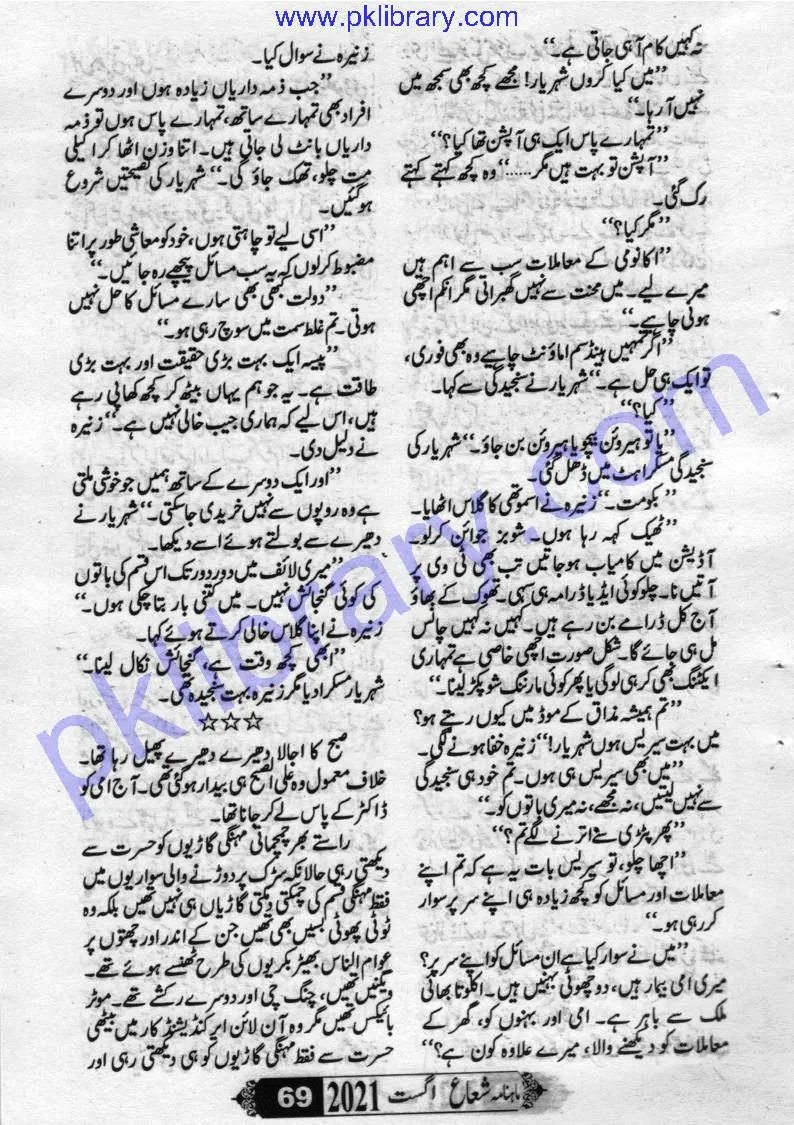 www.pklibrary.com
نہ کہیں کام آ ہی جاتی ہے۔“
”میں کیا کروں شہریار! مجھے کچھ بھی سمجھ میں
نہیں آ رہا۔“
”تمہارے پاس ایک ہی آپشن تھا کیا؟“
”آپشن تو بہت ہیں مگر......“ وہ کچھ کہتے کہتے
رک گئی۔
”مگر کیا؟“
”اکانومی کے معاملات سب سے اہم ہیں
میرے لیے۔ میں محنت سے نہیں گھبراتی مگر انکم اچھی
ہونی چاہیے۔“
”اگر تمہیں ہینڈسم اماؤنٹ چاہیے وہ بھی فوری،
تو ایک ہی حل ہے۔“ شہریار نے سنجیدگی سے کہا۔
”کیا؟“
”یا تو ہیروئن بیچو یا ہیروئن بن جاؤ۔“ شہریار کی
سنجیدگی مسکراہٹ میں ڈھل گئی۔
”بکومت۔“ زنیرہ نے اسموتھی کا گلاس اٹھایا۔
”ٹھیک کہہ رہا ہوں۔ شوبز جوائن کرلو۔
آڈیشن میں کامیاب ہو جاتیں تب بھی ٹی وی پر
آتیں نا۔ چلو کوئی ایڈ یا ڈرامہ ہی سہی۔ تھوک کے بھاؤ
آج کل ڈرامے بن رہے ہیں۔ کہیں نہ کہیں چانس
مل ہی جائے گا۔ شکل صورت اچھی خاصی ہے تمہاری
ایکٹنگ بھی کر ہی لوگی یا پھر کوئی مارننگ شو پکڑ لینا۔“
”تم ہمیشہ مذاق کے موڈ میں کیوں رہتے ہو؟
میں بہت سیریس ہوں شہریار!“ زنیرہ خفا ہونے لگی۔
”میں بھی سیریس ہی ہوں۔ تم خود ہی سنجیدگی
سے نہیں لیتیں، نہ مجھے، نہ میری باتوں کو۔“
”پھر پٹڑی سے اترنے لگے تم؟“
”اچھا چلو، تو سیریس بات یہ ہے کہ تم اپنے
معاملات اور مسائل کو کچھ زیادہ ہی اپنے سر پر سوار
کر رہی ہو۔“
”میں نے سوار کیا ہے ان مسائل کو اپنے سر پر؟
میری امی بیمار ہیں، دو چھوٹی بہنیں ہیں۔ اکلوتا بھائی
ملک سے باہر ہے۔ امی اور بہنوں کو، گھر کے
معاملات کو دیکھنے والا، میرے علاوہ کون ہے؟“
زنیرہ نے سوال کیا۔
”جب ذمہ داریاں زیادہ ہوں اور دوسرے
افراد بھی تمہارے ساتھ، تمہارے پاس ہوں تو ذمہ
داریاں بانٹ لی جاتی ہیں۔ اتنا وزن اٹھا کر اکیلی
مت چلو، تھک جاؤ گی۔“ شہریار کی نصیحتیں شروع
ہوگئیں۔
”اسی لیے تو چاہتی ہوں، خود کو معاشی طور پر اتنا
مضبوط کر لوں کہ یہ سب مسائل پیچھے رہ جائیں۔“
”دولت کبھی بھی سارے مسائل کا حل نہیں
ہوتی۔ تم غلط سمت میں سوچ رہی ہو۔“
”پیسہ ایک بہت بڑی حقیقت اور بہت بڑی
طاقت ہے۔ یہ جو ہم یہاں بیٹھ کر کچھ کھا پی رہے
ہیں، اس لیے کہ ہماری جیب خالی نہیں ہے۔“ زنیرہ
نے دلیل دی۔
”اور ایک دوسرے کے ساتھ ہمیں جو خوشی ملتی
ہے وہ روپوں سے نہیں خریدی جا سکتی۔“ شہریار نے
دھیرے سے بولتے ہوئے اسے دیکھا۔
”میری لائف میں دور دور تک اس قسم کی باتوں
کی کوئی گنجائش نہیں۔ میں کتنی بار بتا چکی ہوں۔“
زنیرہ نے اپنا گلاس خالی کرتے ہوئے کہا۔
”ابھی کچھ وقت ہے، گنجائش نکال لینا۔“
شہریار مسکرا دیا مگر زنیرہ بہت سنجیدہ تھی۔
☆☆☆
صبح کا اجالا دھیرے دھیرے پھیل رہا تھا۔
خلاف معمول وہ علی الصبح ہی بیدار ہوگئی تھی۔ آج امی کو
ڈاکٹر کے پاس لے کر جانا تھا۔
راستے بھر چمچماتی مہنگی گاڑیوں کو حسرت سے
دیکھتی رہی حالانکہ سڑک پر دوڑنے والی سواریوں میں
فقط مہنگی قسم کی چمکتی دمکتی گاڑیاں ہی نہیں تھیں بلکہ وہ
ٹوٹی پھوٹی بسیں بھی تھیں جن کے اندر اور چھتوں پر
عوام الناس بھیڑ بکریوں کی طرح ٹھنسے ہوئے تھے۔
ویگنیں تھیں، چنگ چی اور دوسرے رکشے تھے۔ موٹر
بائیکس تھیں مگر وہ آن لائن ایر کنڈیشنڈ کار میں بیٹھی
حسرت سے فقط مہنگی گاڑیوں کو ہی دیکھتی رہی اور
ماہنامہ شعاع اگست 2021 69
pklibrary.com